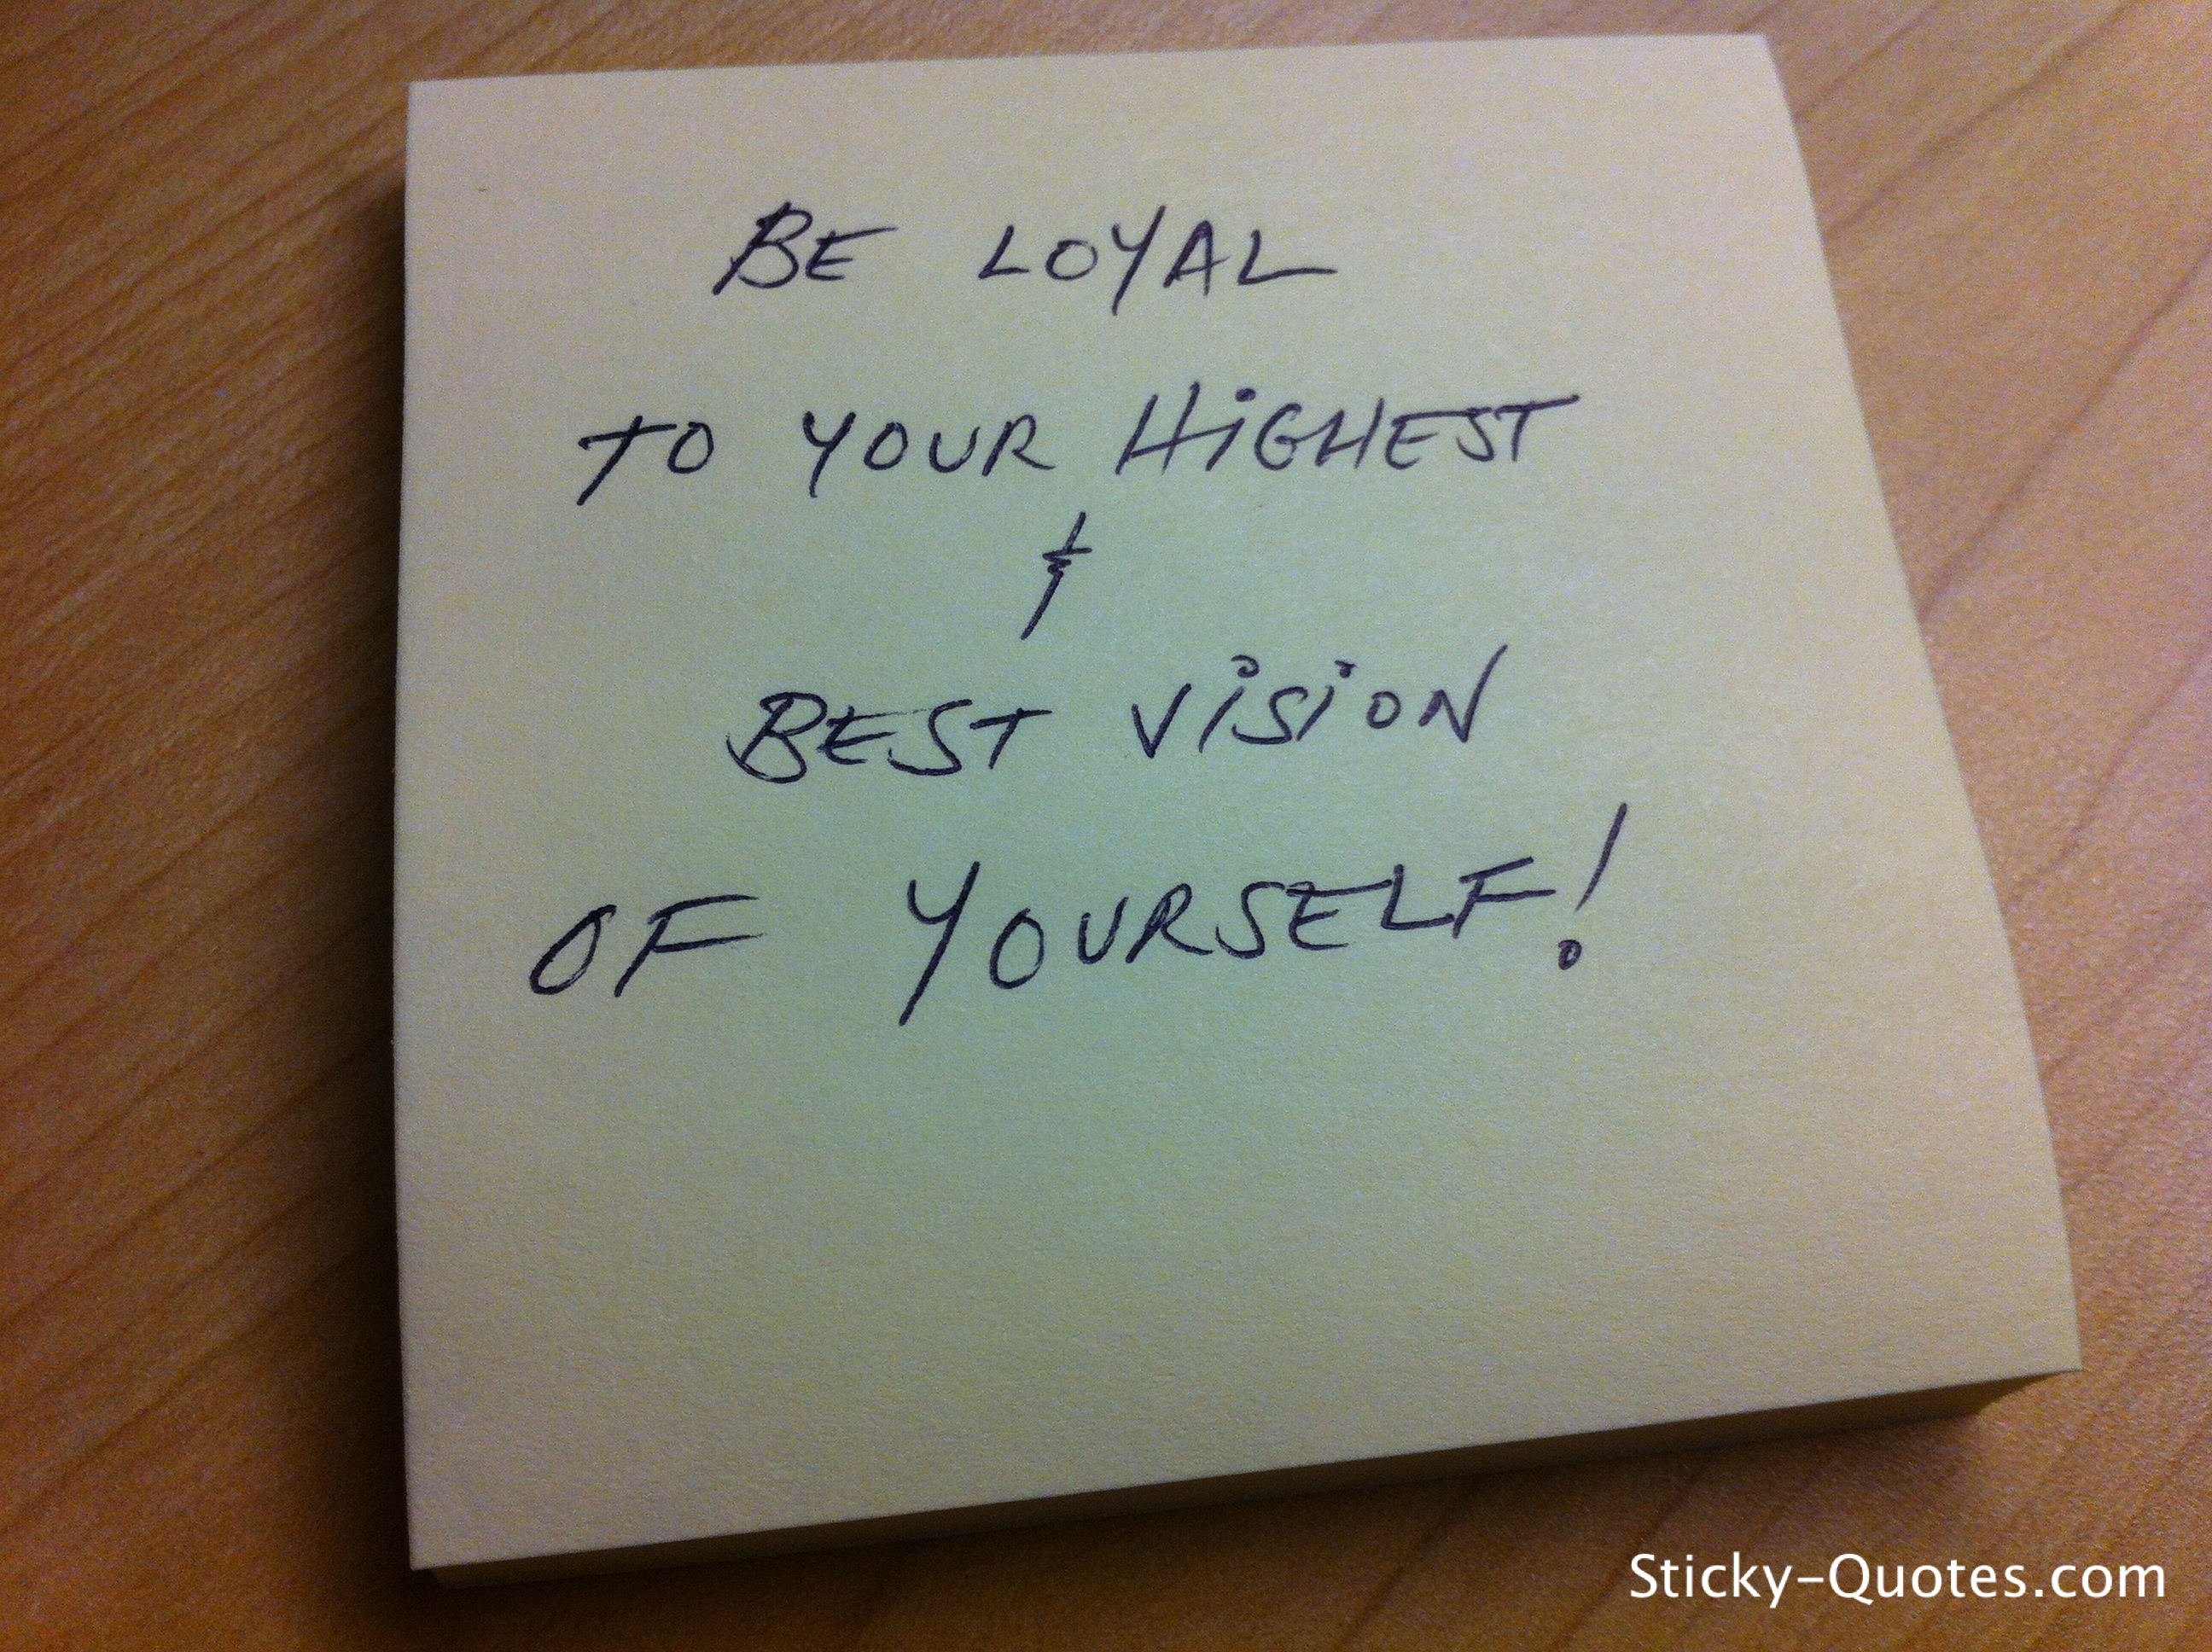 BE LOYAL
TO YOUR HiGHEST
&
BEST ViSiON
OF YOURSELF!
Sticky-Quotes.com